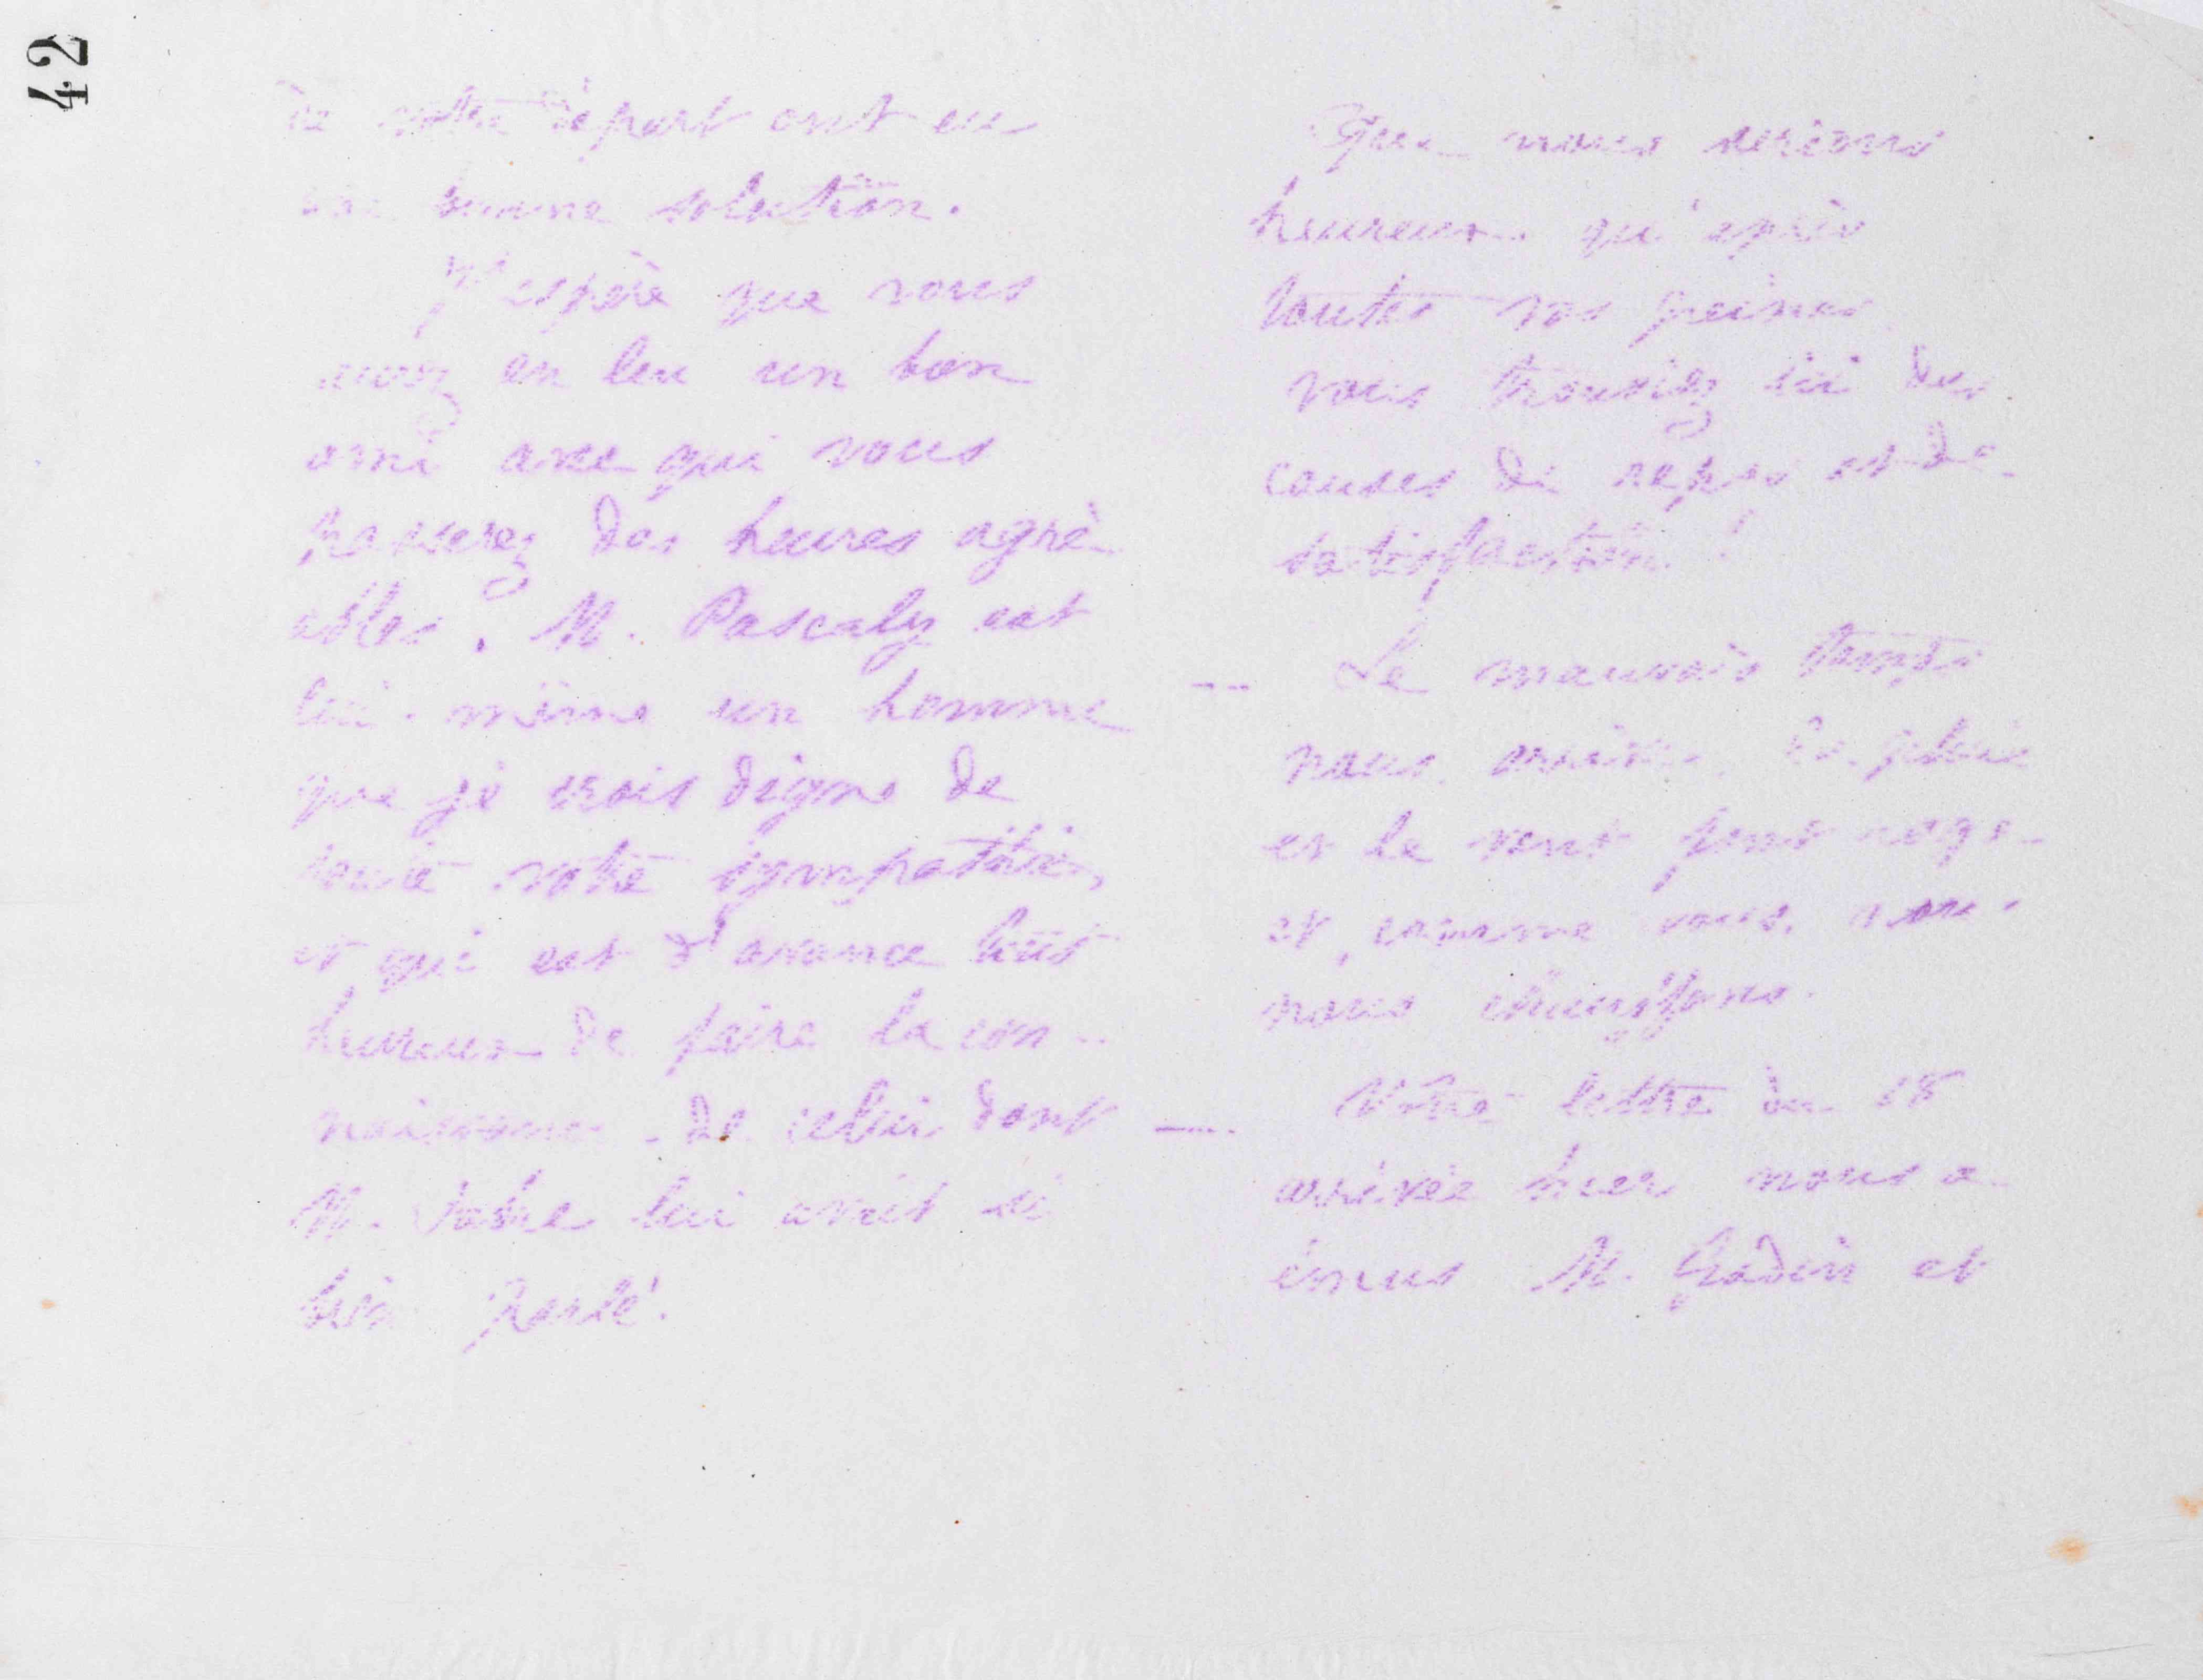 42
de votre départ ont eu
une bonne solution.
J'espère que vous
aurez en lui un bon
ami avec qui vous
passerez des heures agré-
ables. M. Pascaly est
lui-même un homme
que je crois digne de
toute votre sympathie,
et qui est d'avance tout
heureux de faire la con-
naissance de celui dont
M. lui avait si
bien parlé.
Que nous serions
heureux qu'après
toutes vos peines
vous trouviez ici des
causes de repos et de
satisfaction !
Le mauvais temps
nous arrive. La pluie
et le vent font rage
et, comme vous, nous
nous chauffons.
Votre lettre du 18
arrivée hier nous a
émus M. et